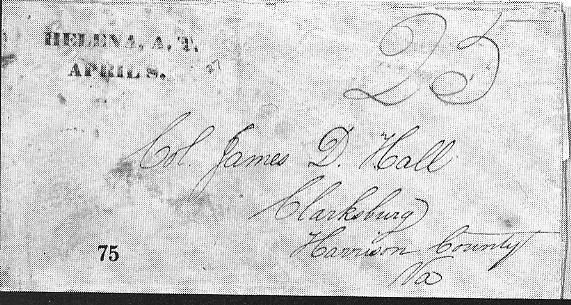 HELENA, A. T.
APRIL 8.
27
25
Col. James D. Hall
Clarksburg
Harrison County
Va
75